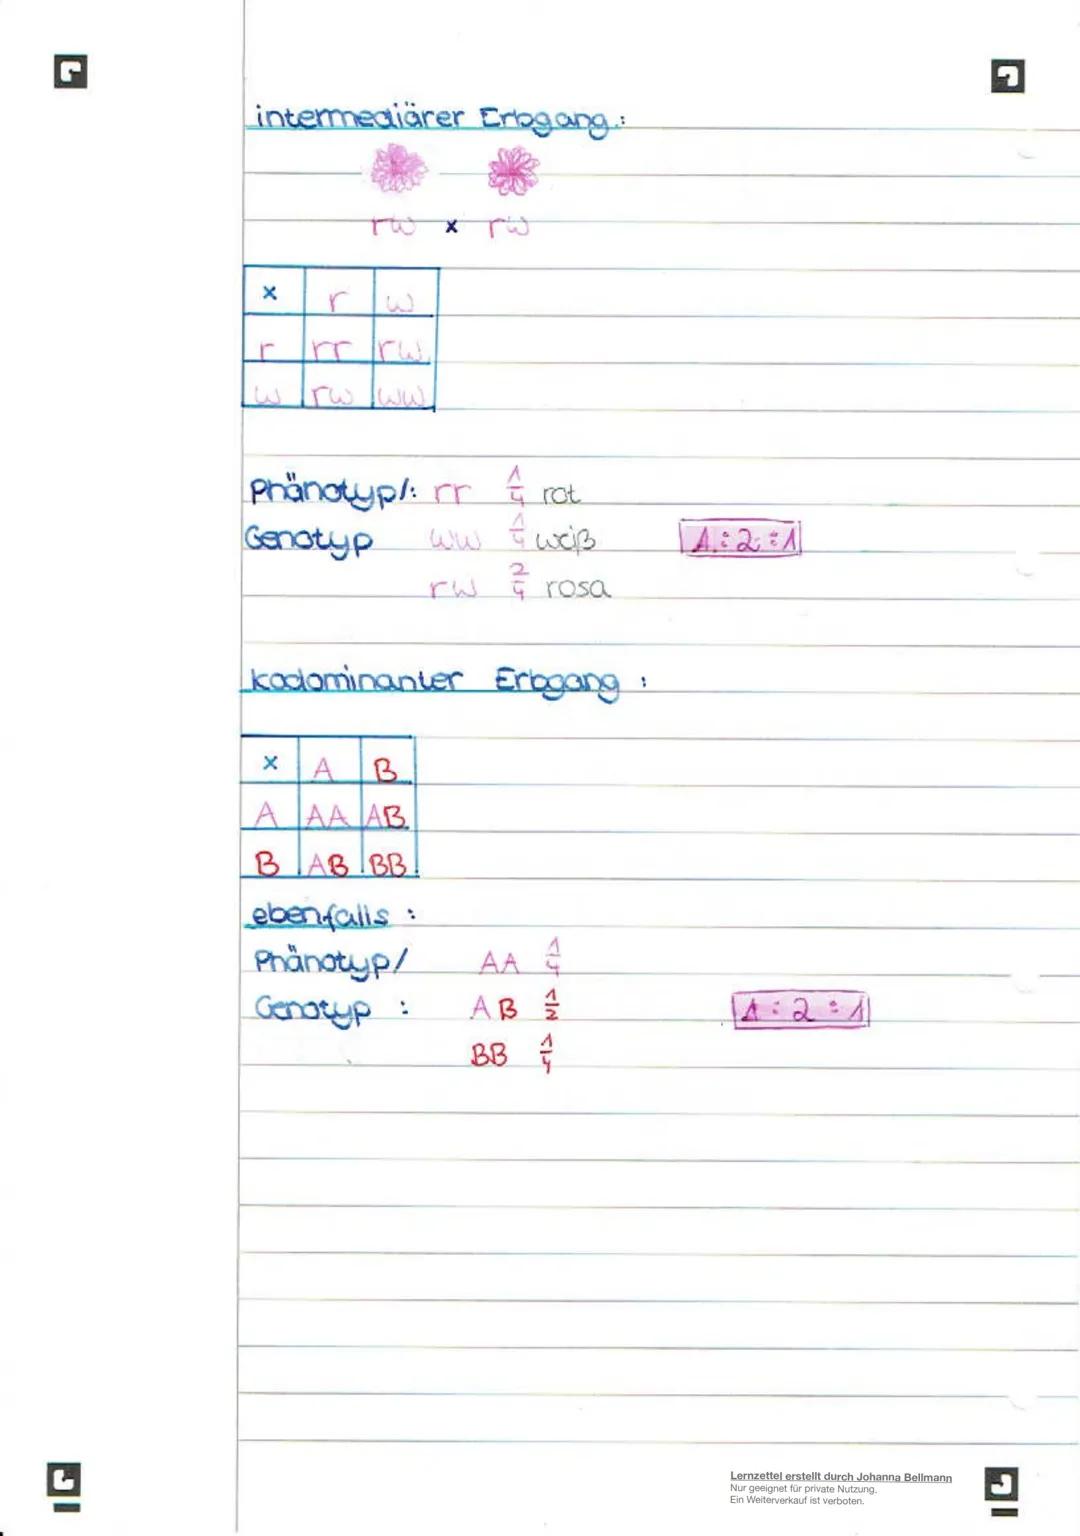 intermediärer Erbgang:
rw x rw
x r w
r rr rw
w rw ww
Phänotyp/: rr 1/4 rot
Genotyp ww 1/4 weiß 1:2:1
rw 2/4 rosa
kodominanter Erbgang:
x A B
A AA AB
B AB BB
ebenfalls:
Phänotyp/ AA 1/4
Genotyp: AB 1/2 1:2:1
BB 1/4
Lernzettel erstellt durch Johanna Bellmann
Nur geeignet für private Nutzung.
Ein Weiterverkauf ist verboten.